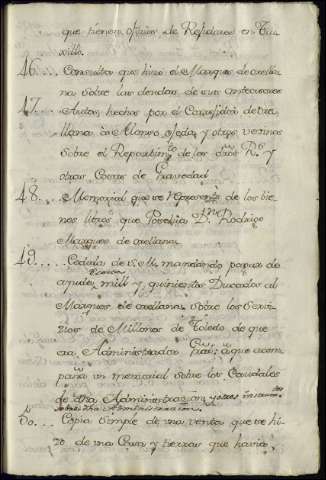 que tienen oficios de Rejidores en Tru
xillo.
46.... Consultas que hizo el Marques de orella
na sobre las deudas de sus antecesores
47.... Autos, hechos por el Corregidor de tru
Alonso ojeda, y otros vecinos
sobre el Repartim.to de los dros R.s y
otras Cosas de Gravedad
48.... Memorial que se de los bie
nes libros que Posehia D.n Rodrigo
Marques de orellana
49..... Cedula de S. M. mandando pagar de
ayuda mill y quinientos Ducados al
Marques de orellana sobre los Servi
zios de Millones de Toledo de que
era Administrador a que acom
paña un memorial sobre los Caudales
de dha Administrazion, y otros
sobre dha Administracion
50... Copia simple de una venta que se hi
zo de una Casa y tierras que havia